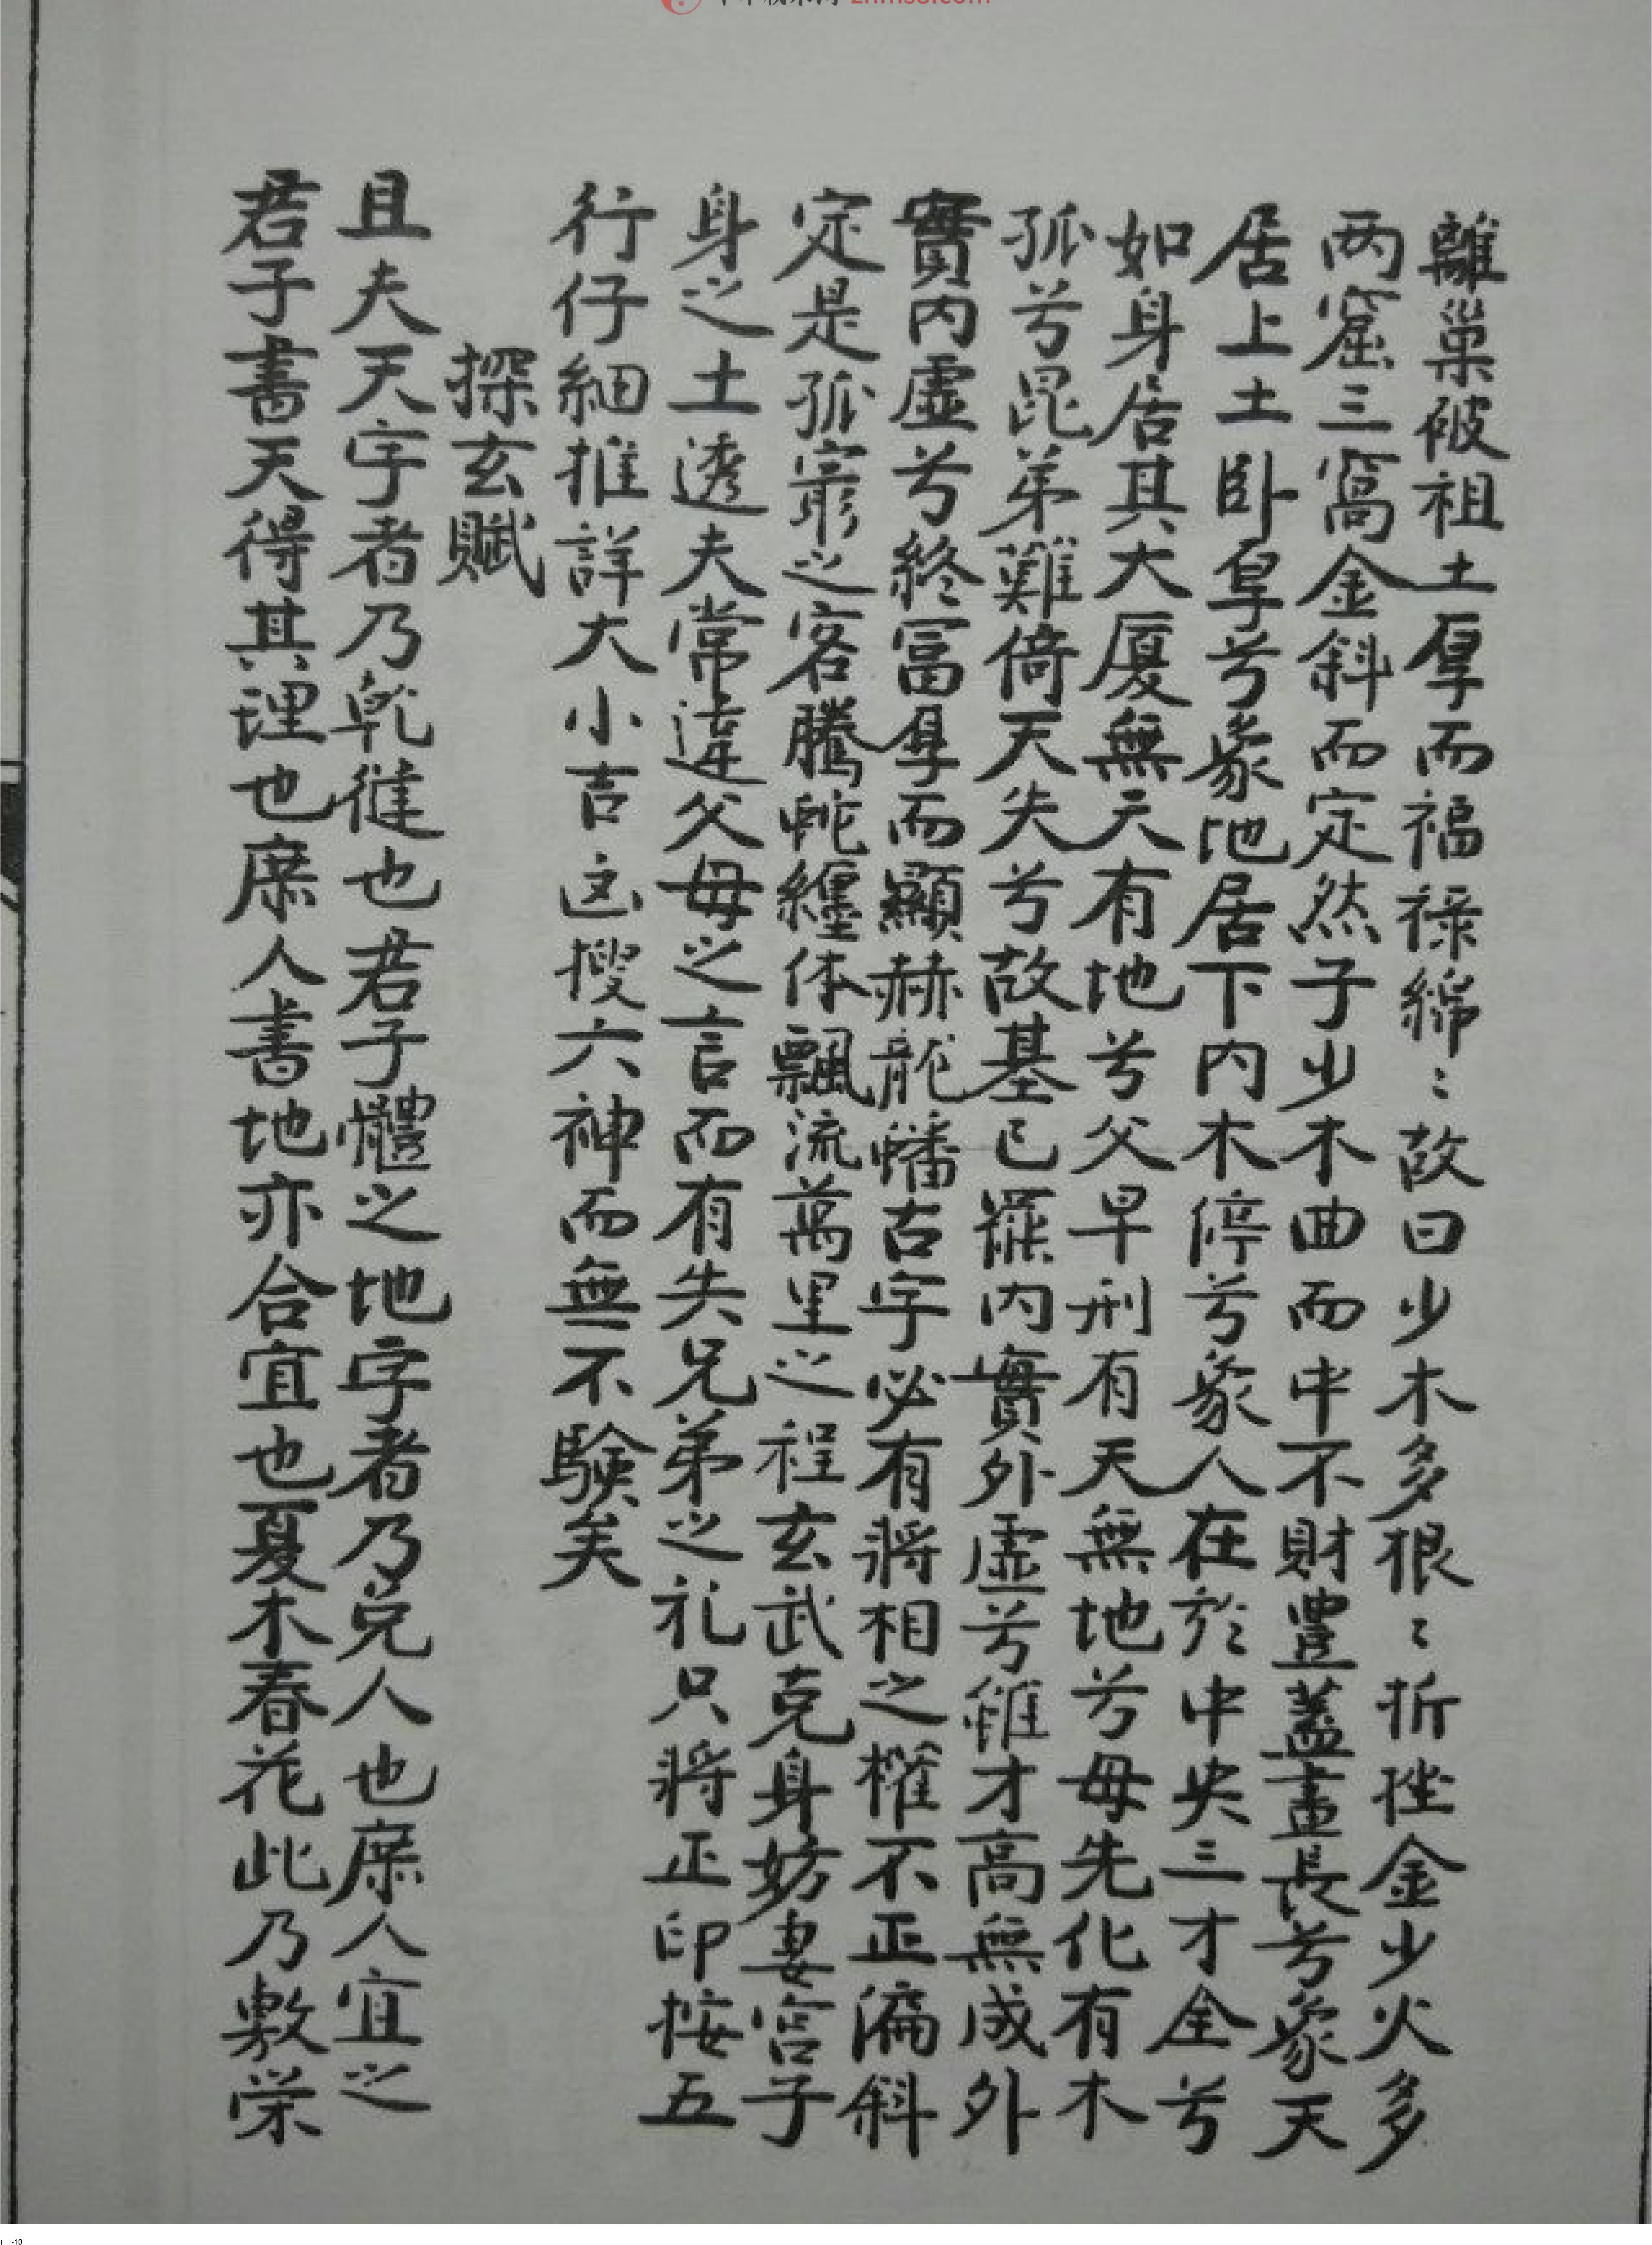 離巢破祖土厚而福祿綿〻故曰少木多多狠〻折挫金少火多
两窟三窩金斜而定然子少木曲而中不財豊蓋畫長兮象天
居上土卧厚兮象地居下内木停兮象人在於中央三才全兮
如身居其大厦無天有地兮父早刑有天無地兮母先化有木
孤兮昆弟難倚天失兮故基已罷内實外虛兮雖才高無成外
實内虛兮終冨厚而顯赫龍蟠古字必有將相之權不正偏斜
定是孤窮之客騰蛇纏体飄流萬里之程玄武克身妨妻宫子
身之土透夫常違父母之言而有失兄弟之礼只將正印按五
行仔細推詳大小吉凶搜六神而無不驗矣
探玄賦
且夫天字者乃乾健也君子體之地字者乃兑人也庶人宜之
君子書天得其理也庶人書地亦合宜也夏木春花此乃敷栄